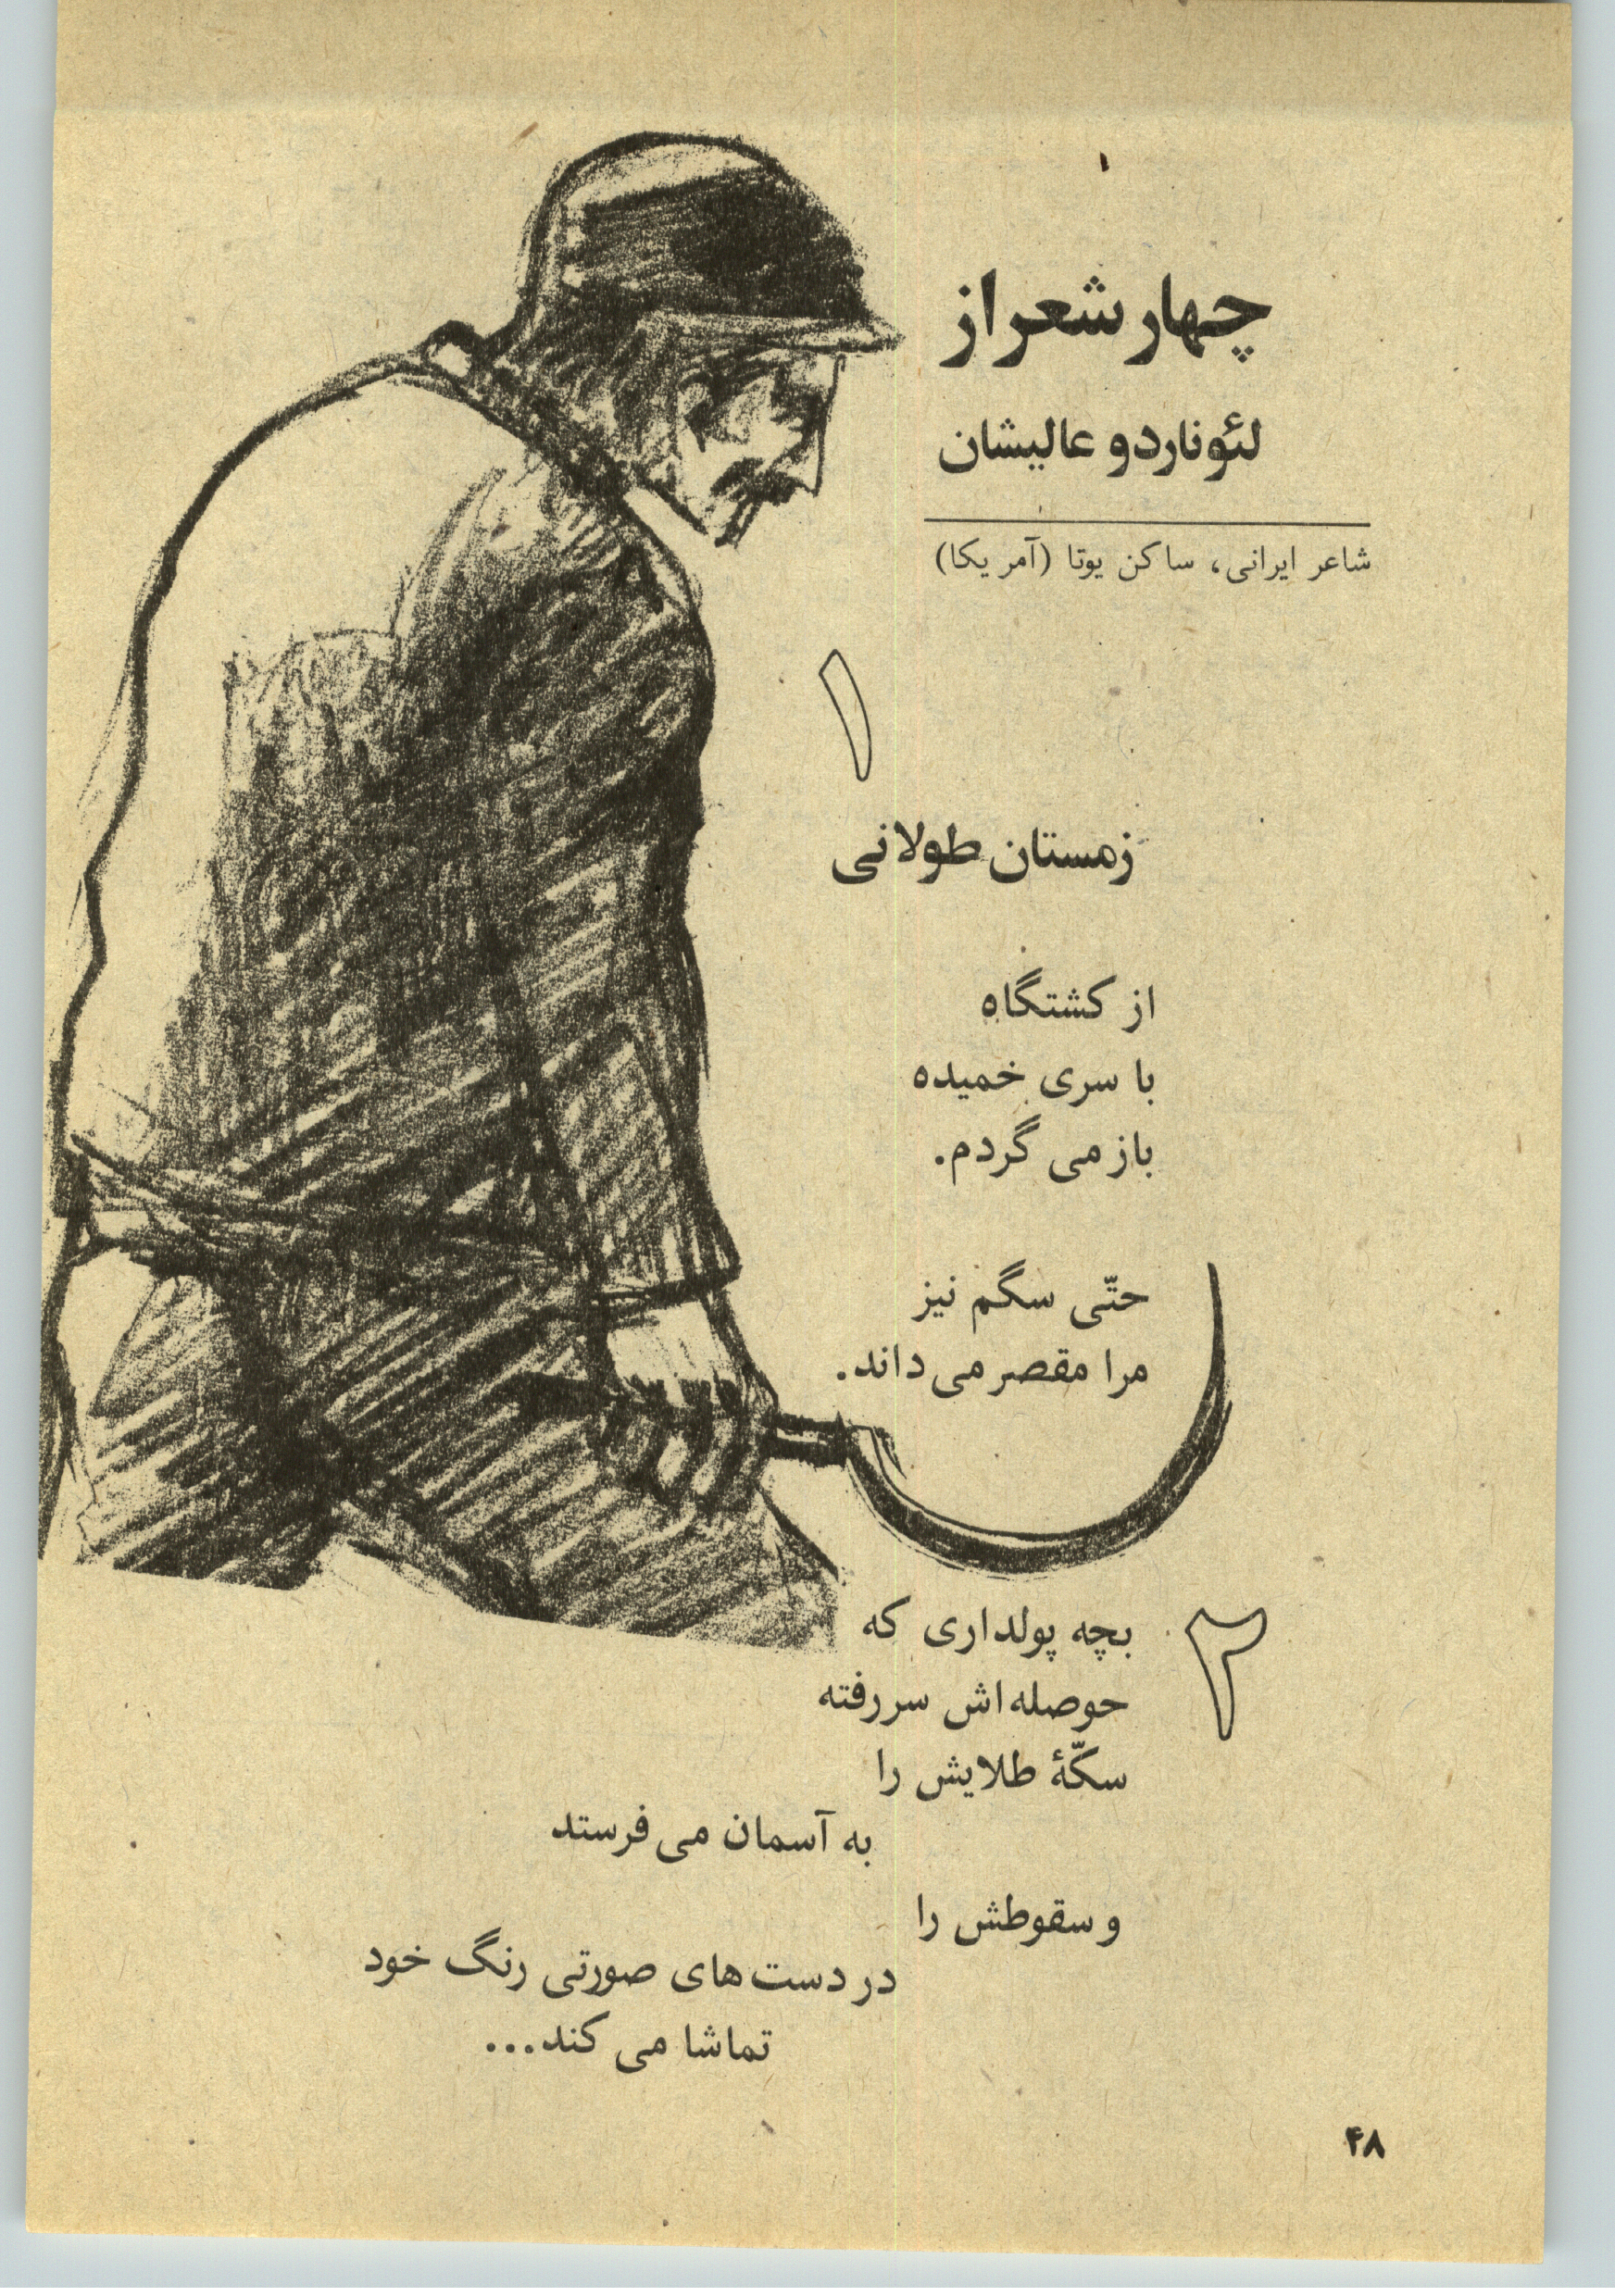 چهار شعر از
لئوناردو عالیشان
شاعر ایرانی، ساکن یوتا (آمریکا)
۱
زمستان طولانی
از کشتگاه
با سری خمیده
باز می گردم.
حتّی سگم نیز
مرا مقصر می داند.
۲
بچه پولداری که
حوصله اش سررفته
سکّهٔ طلایش را
به آسمان می فرستد
و سقوطش را
در دست های صورتی رنگ خود
تماشا می کند...
۴۸